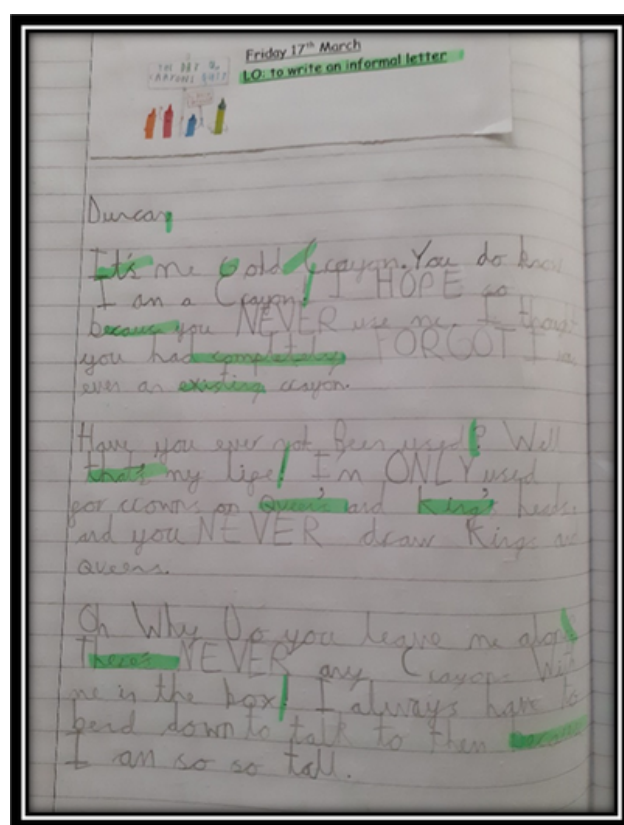 THE DAY THE
CRAYONS QUIT
Friday 17th March
LO: to write an informal letter
Duncan,
It's me Gold Crayon. You do know
I am a Crayon! I HOPE so
because you NEVER use me. I thought
you had completely FORGOT I was
even an existing crayon.
Have you ever not been used? Well
that's my life! I'm ONLY used
for crowns on queen's and king's heads
and you NEVER draw Kings and
queens.
Oh Why Do you leave me alone
There's NEVER any Crayons With
me in the box! I always have to
bend down to talk to them because
I am so so tall.